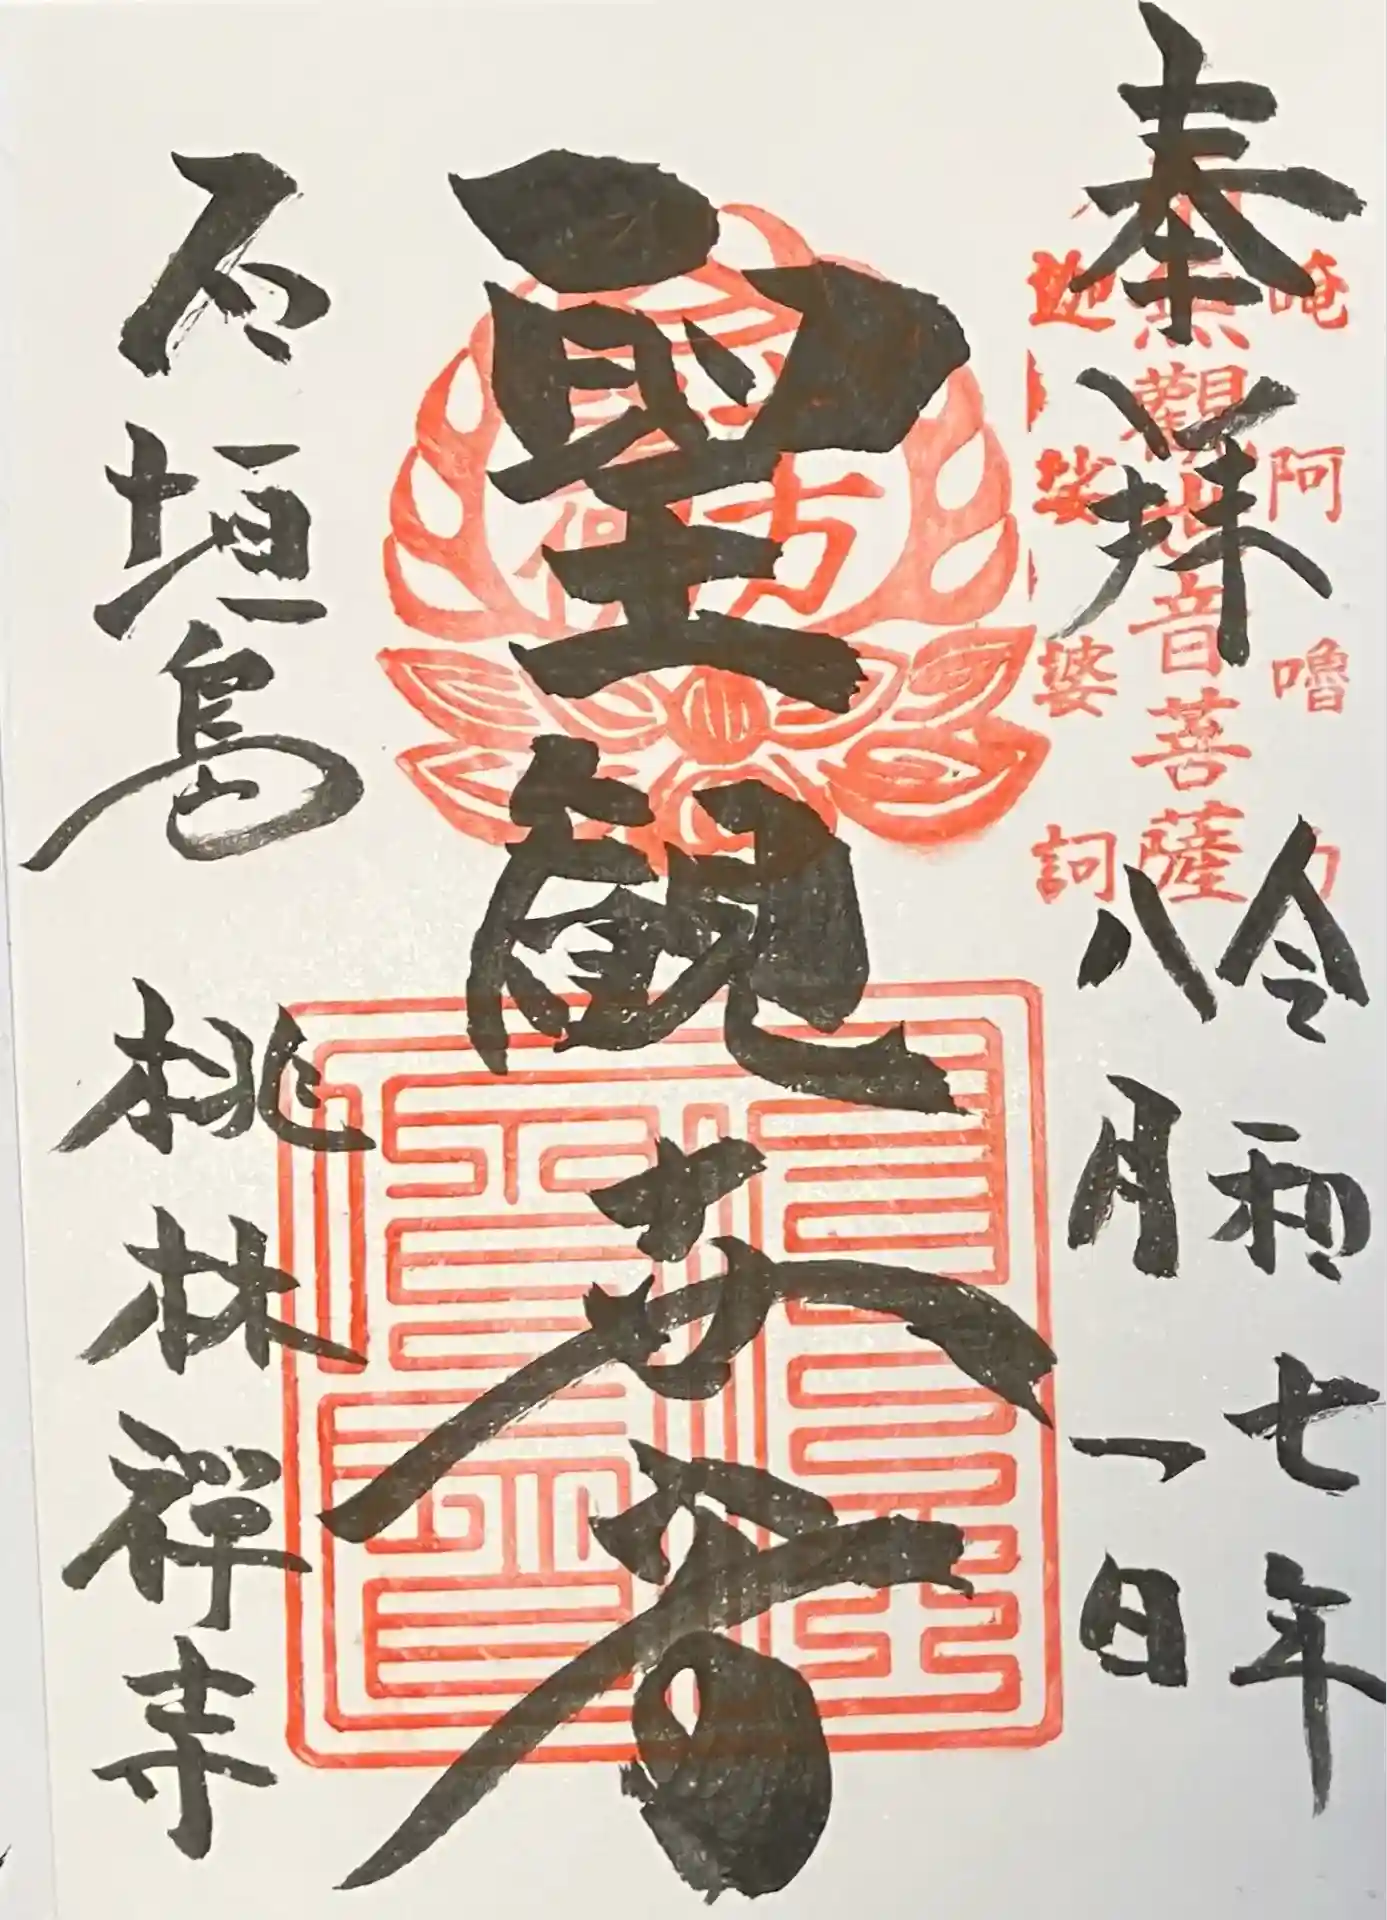 奉拝
唵阿嚕力
南無觀世音菩薩
迦娑婆訶
令和七年
八月一日
聖観世音
石垣島 桃林禅寺